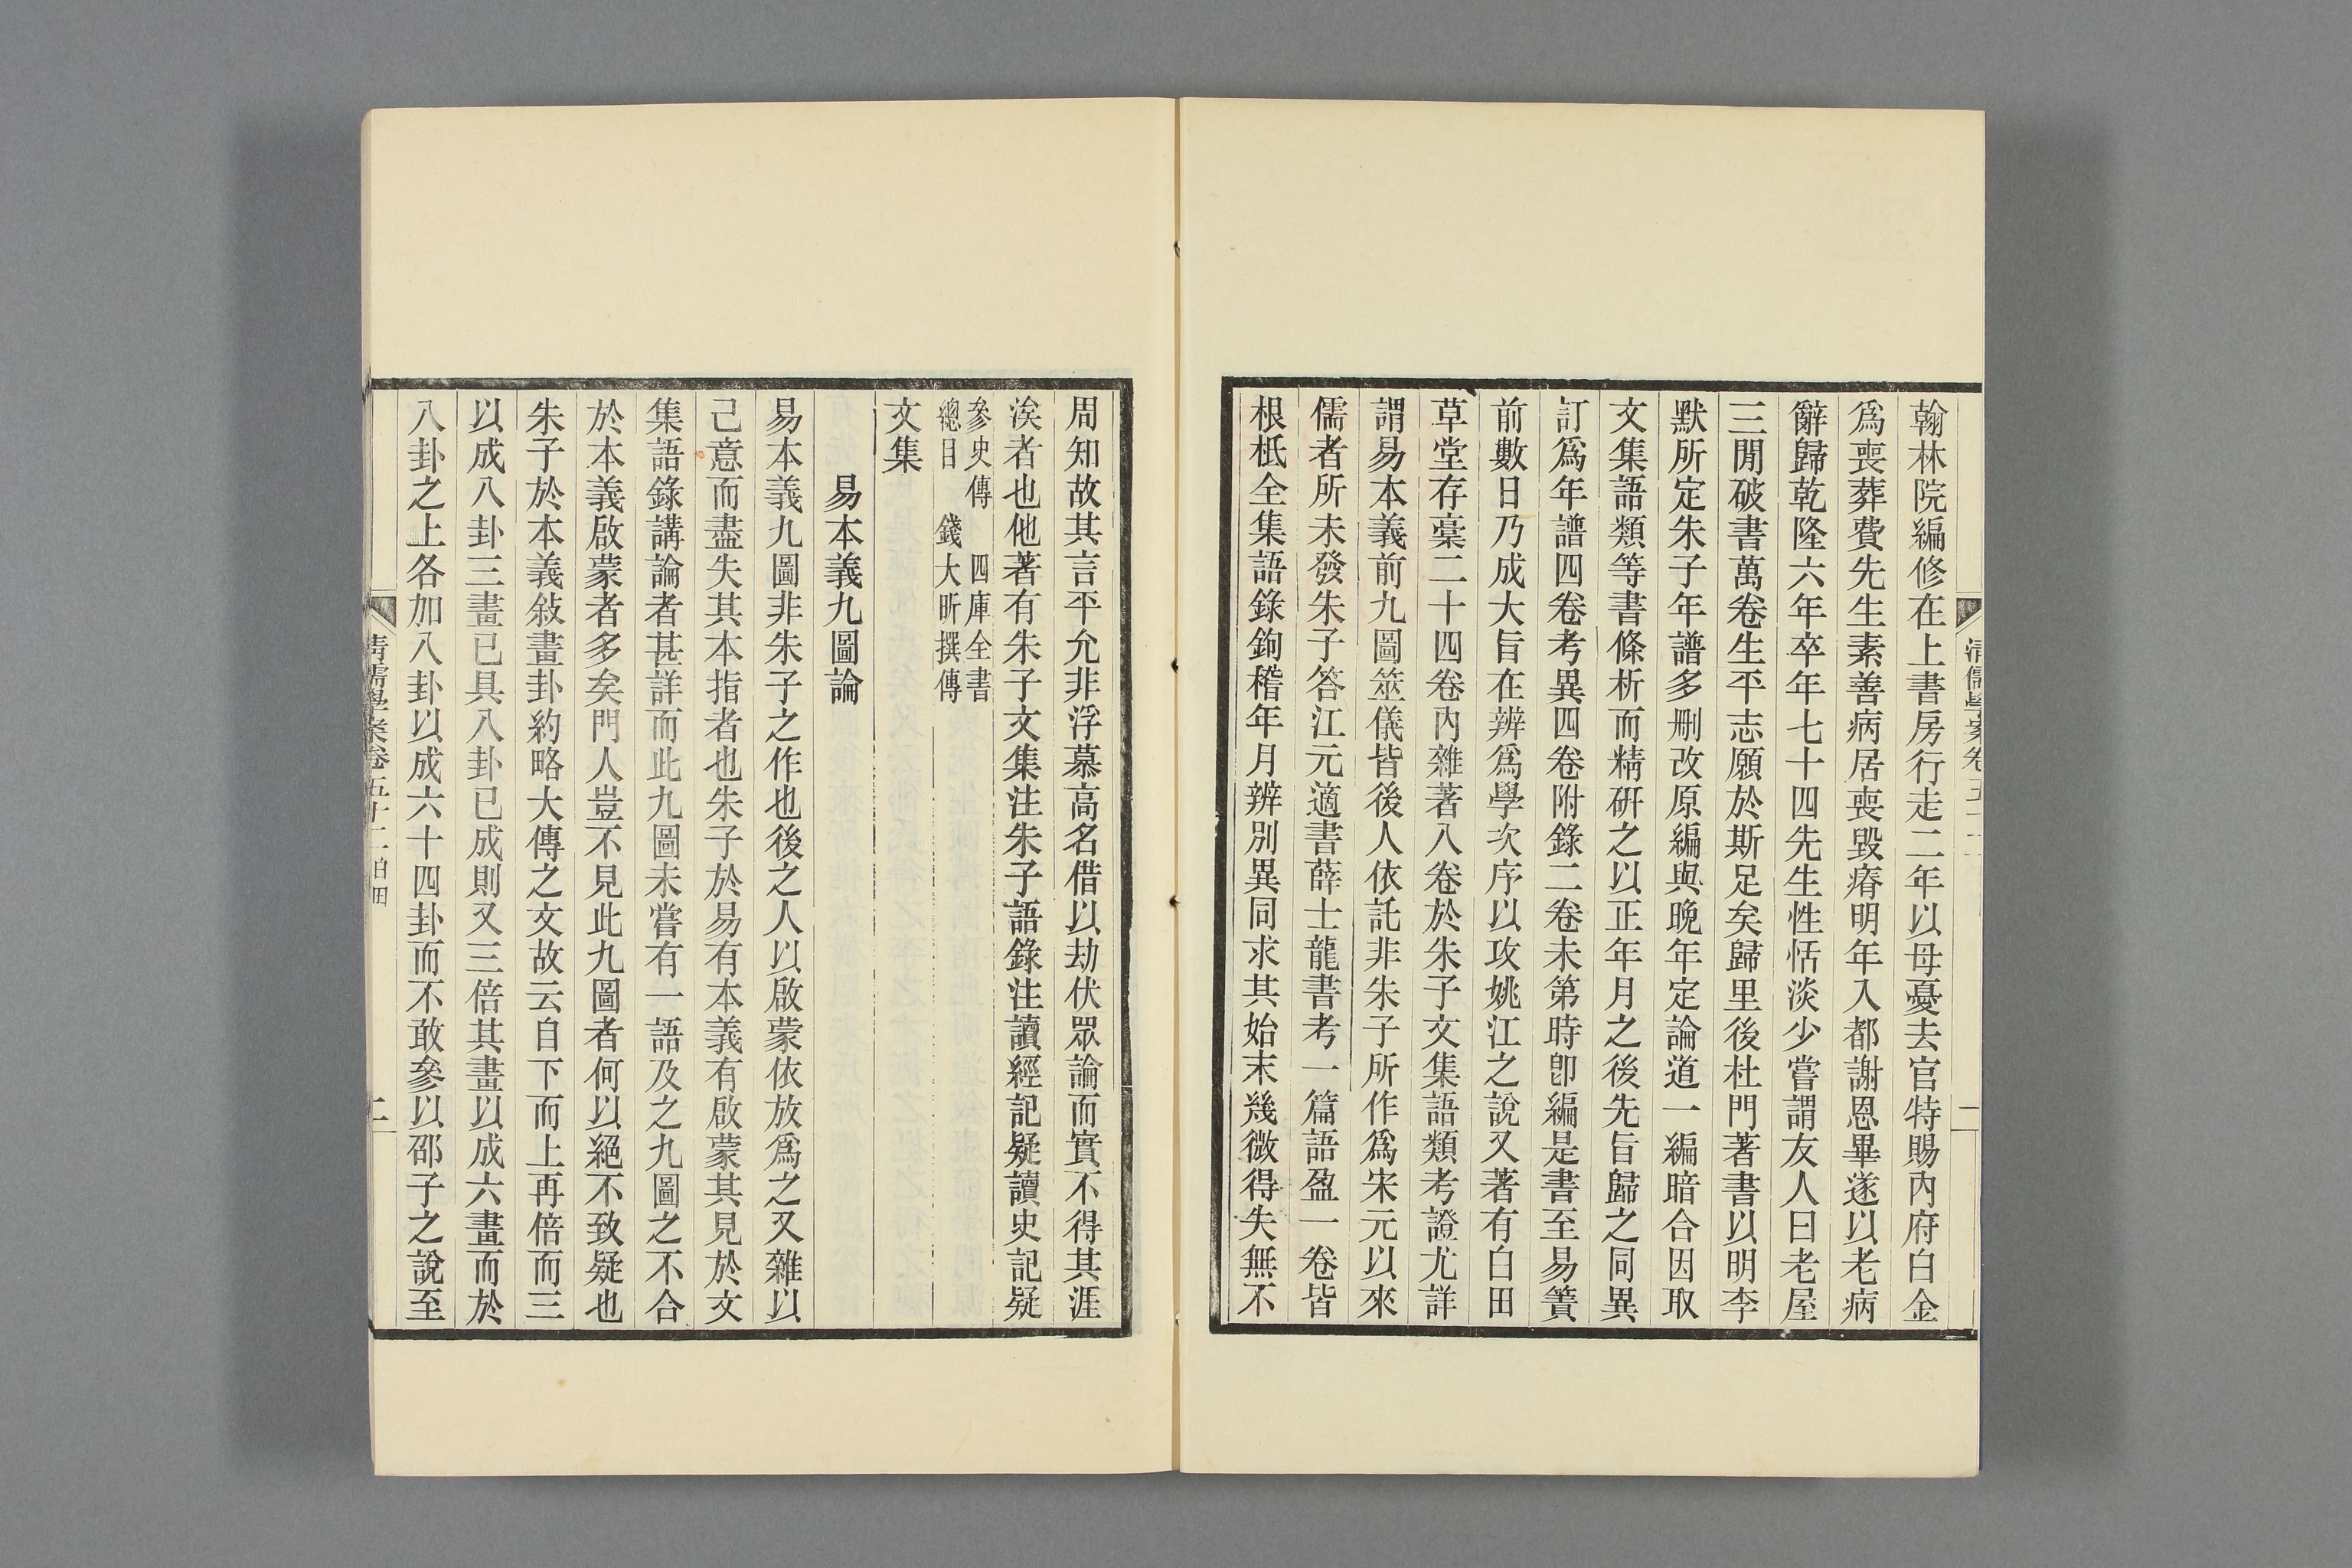 翰林院編修在上書房行走二年以母憂去官特賜內府白金
爲喪葬費先生素善病居喪毀瘠明年入都謝恩畢遂以老病
辭歸乾隆六年卒年七十四先生性恬淡少嘗謂友人曰老屋
三閒破書萬卷生平志願於斯足矣歸里後杜門著書以明李
默所定朱子年譜多刪改原編與晚年定論道一編暗合因取
文集語類等書條析而精研之以正年月之後先旨歸之同異
訂爲年譜四卷考異四卷附錄二卷未第時卽編是書至易簀
前數日乃成大旨在辨爲學次序以攻姚江之說又著有白田
草堂存稾二十四卷內雜著八卷於朱子文集語類考證尤詳
謂易本義前九圖筮儀皆後人依託非朱子所作爲宋元以來
儒者所未發朱子答江元適書薛士龍書考一篇語盈一卷皆
根柢全集語錄鉤稽年月辨別異同求其始末幾微得失無不
周知故其言平允非浮慕高名借以劫伏眾論而實不得其涯
涘者也他著有朱子文集注朱子語錄注讀經記疑讀史記疑
參史傳　四庫全書
總目　錢大昕撰傳
文集
易本義九圖論
易本義九圖非朱子之作也後之人以啟蒙依放爲之又雜以
己意而盡失其本指者也朱子於易有本義有啟蒙其見於文
集語錄講論者甚詳而此九圖未嘗有一語及之九圖之不合
於本義啟蒙者多矣門人豈不見此九圖者何以絕不致疑也
朱子於本義敍畫卦約略大傳之文故云自下而上再倍而三
以成八卦三畫已具八卦已成則又三倍其畫以成六畫而於
八卦之上各加八卦以成六十四卦而不敢參以邵子之說至
清儒學案卷五十二 白田
二